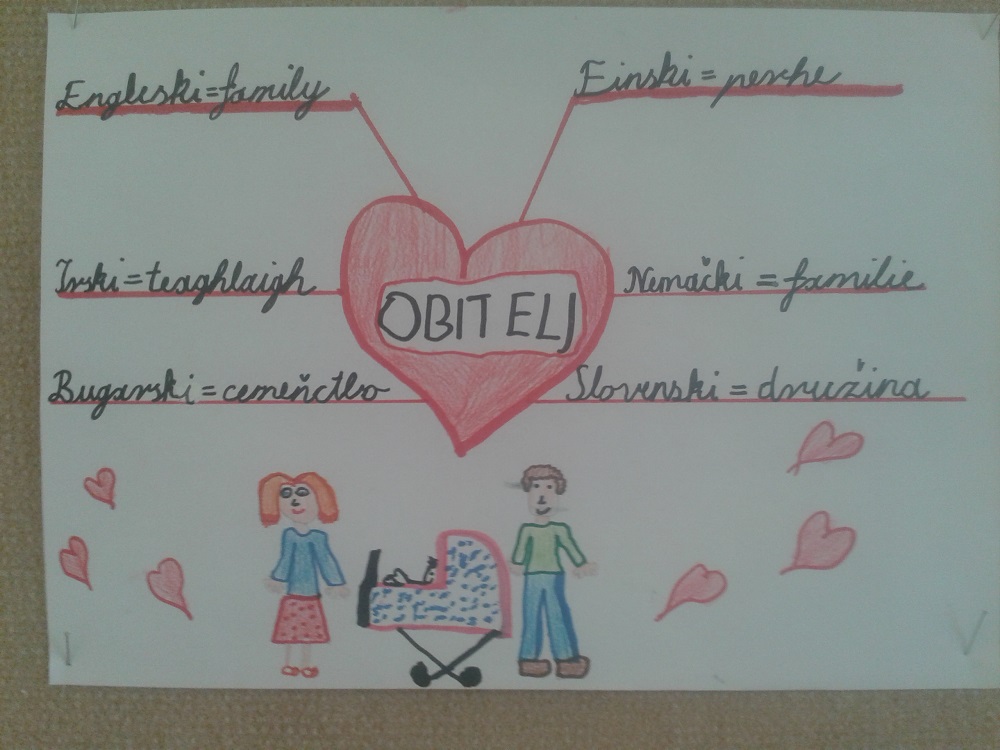 Engleski=family
Finski = perche
Irski=teaghlaigh
OBITELJ
Nemački = familie
Bugarski=cemeňctbo
Slovenski = družina